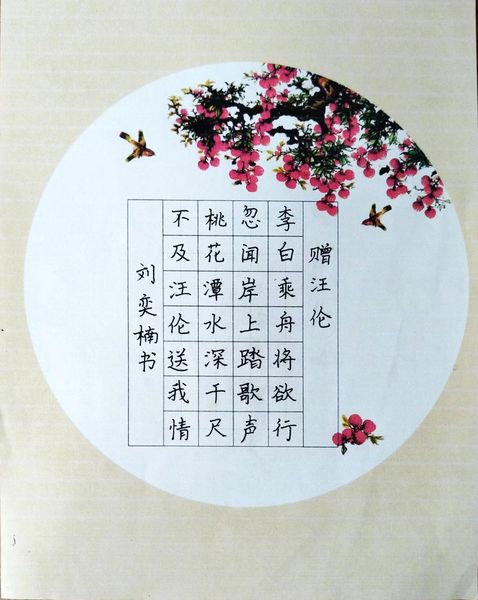 赠汪伦
李白乘舟将欲行
忽闻岸上踏歌声
桃花潭水深千尺
不及汪伦送我情
刘奕楠书